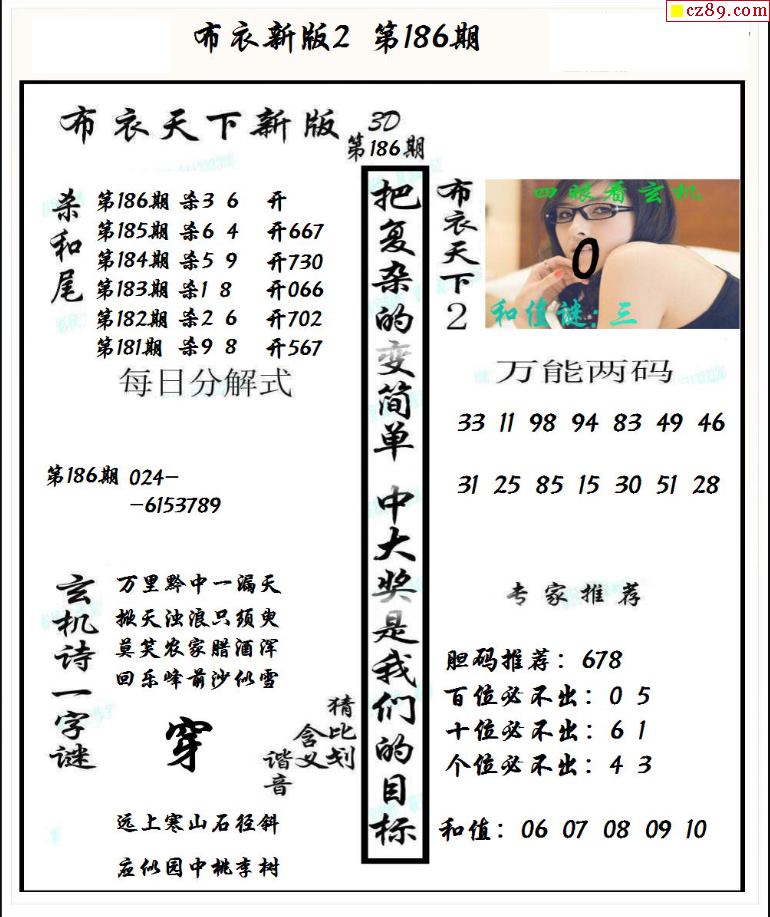 cz89.com
布衣新版2 第186期
布衣天下新版 3D
第186期
杀和尾
第186期 杀3 6 开
第185期 杀6 4 开667
第184期 杀5 9 开730
第183期 杀1 8 开066
第182期 杀2 6 开702
第181期 杀9 8 开567
每日分解式
第186期 024-
-6153789
玄机诗一字谜
万里黔中一漏天
掀天浊浪只须臾
莫笑农家腊酒浑
回乐峰前沙似雪
穿
猜比划
含义
谐音
远上寒山石径斜
应似园中桃李树
把复杂的变简单 中大奖是我们的目标
布衣天下2
四眼看玄机
0
和值谜:三
万能两码
33 11 98 94 83 49 46
31 25 85 15 30 51 28
专家推荐
胆码推荐：678
百位必不出：0 5
十位必不出：6 1
个位必不出：4 3
和值：06 07 08 09 10